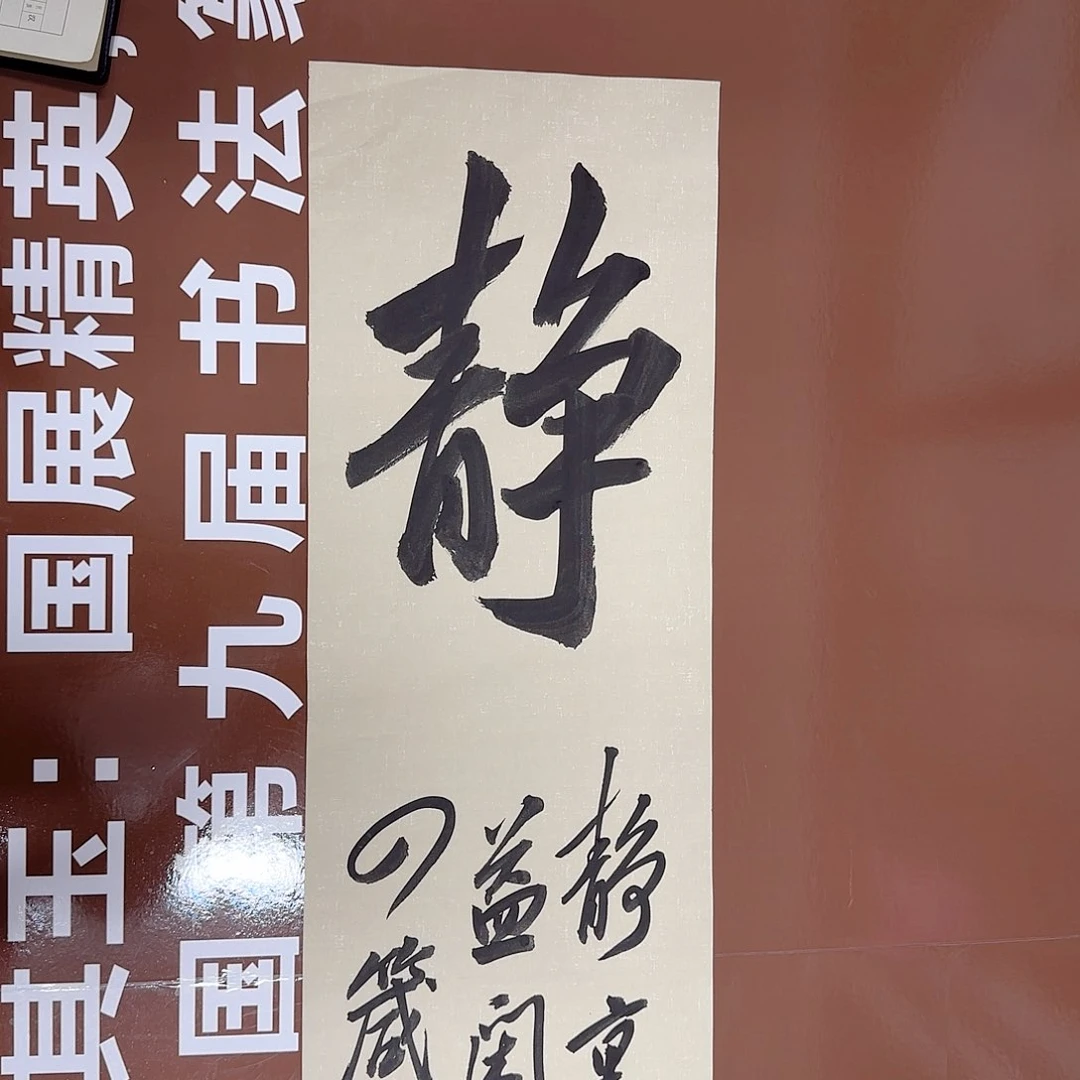 静
静
益
の
箴
国展精英,
其玉:
国第九届书法篆